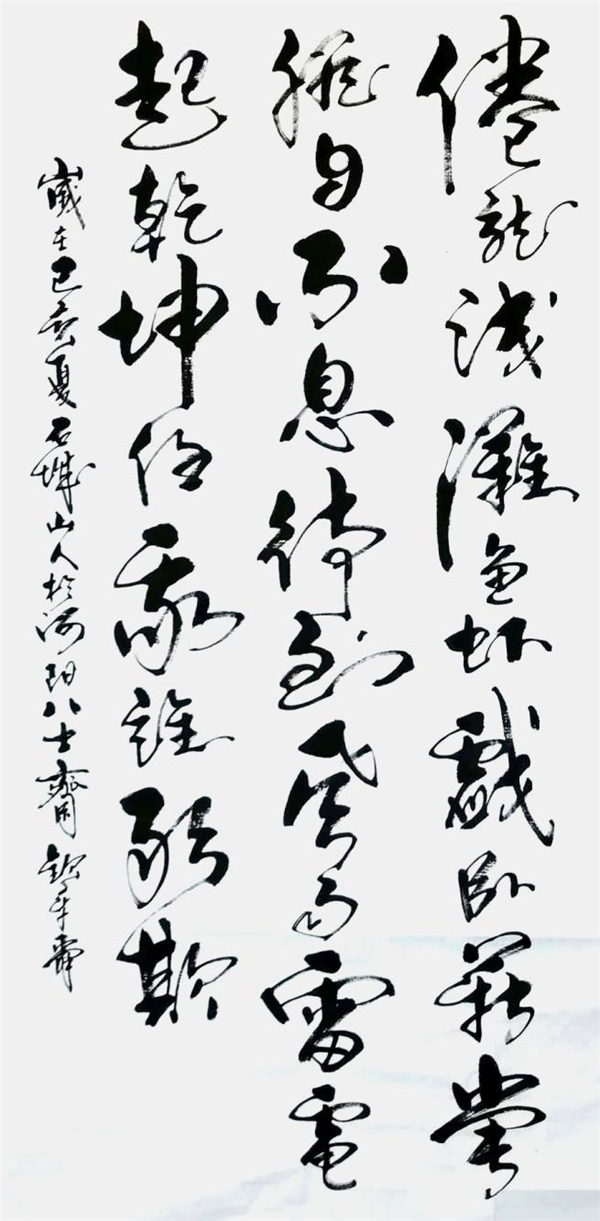 倦龍淺灘魚虾戲卧薪嘗
膽自不息待到風雨雷電
起乾坤任我誰能欺
歲在己亥夏石城山人於河阳八士齋